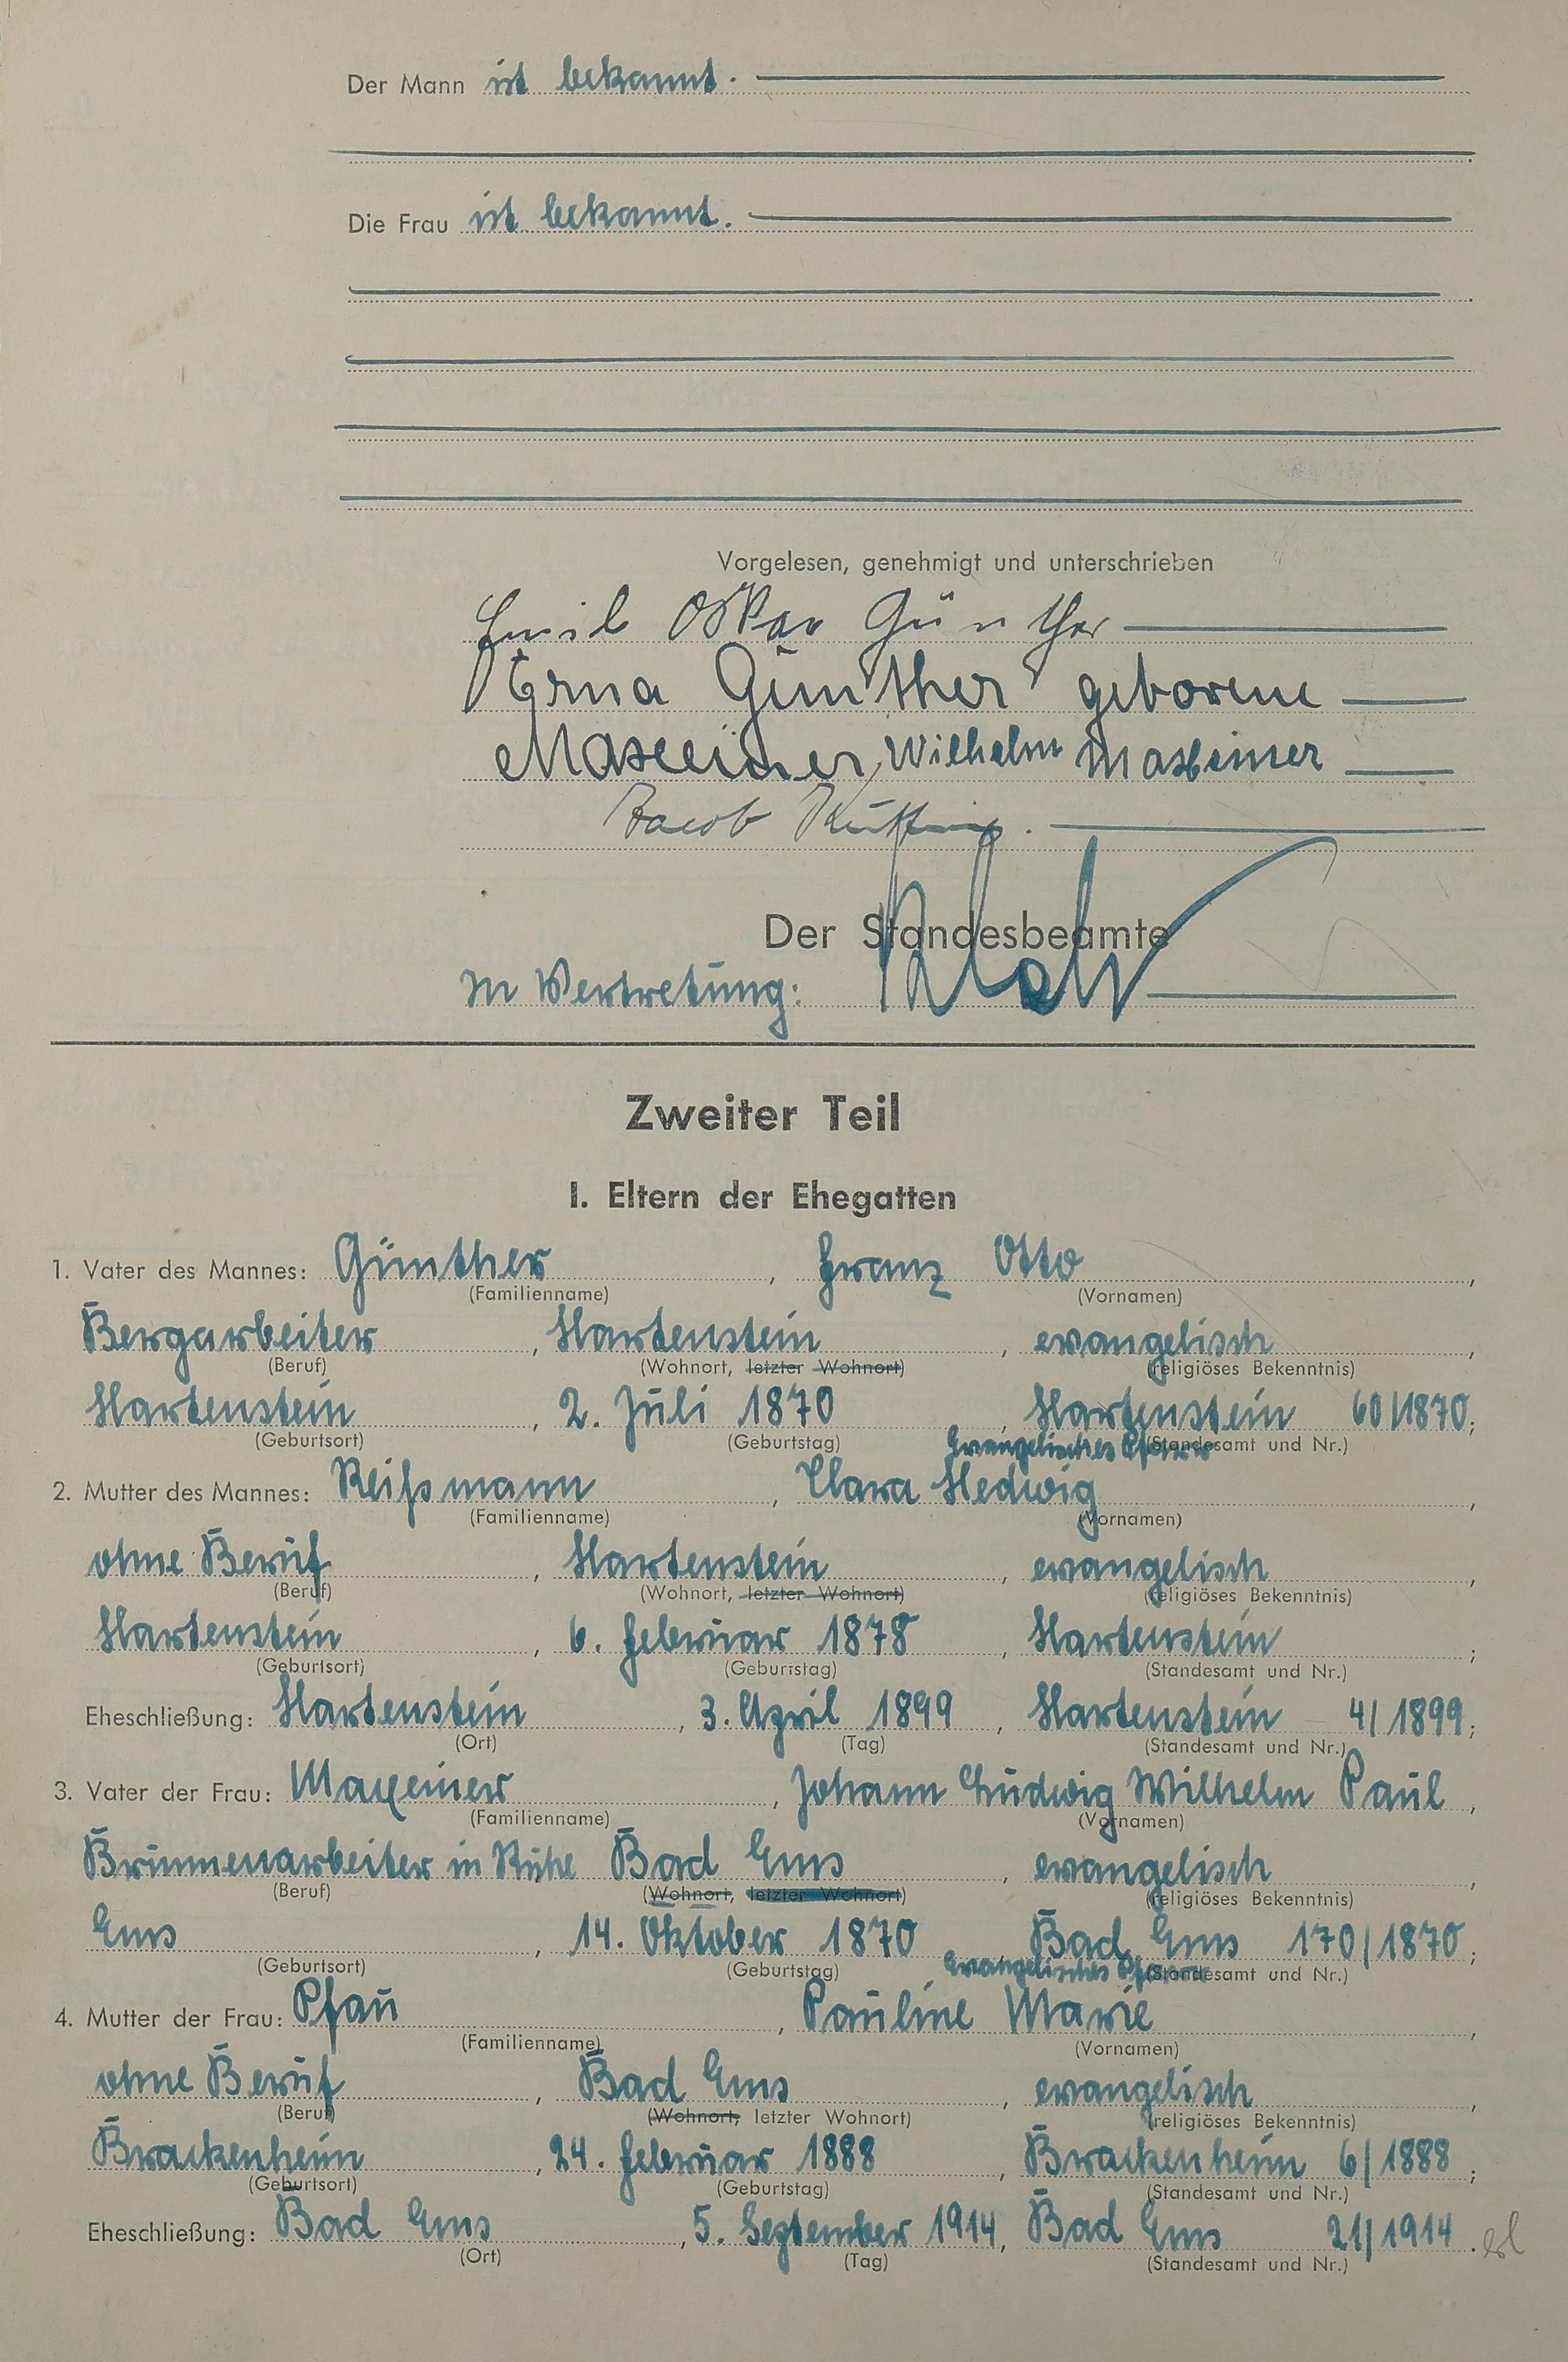 Der Mann ist bekannt.
Die Frau ist bekannt.
Vorgelesen, genehmigt und unterschrieben
Emil Oskar Günther
Erna Günther geborene
Maxeiner, Wilhelm Maxeiner
Jacob
Der Standesbeamte
In Vertretung:
Zweiter Teil
I. Eltern der Ehegatten
1. Vater des Mannes: Günther, Franz Otto,
(Familienname) (Vornamen)
Bergarbeiter, Hartenstein, evangelisch,
(Beruf) (Wohnort, letzter Wohnort) (religiöses Bekenntnis)
Hartenstein, 2. Juli 1870, Hartenstein 60/1870;
(Geburtsort) (Geburtstag) (Standesamt und Nr.)
Evangelisches Pfarramt
2. Mutter des Mannes: Reißmann, Clara Hedwig,
(Familienname) (Vornamen)
ohne Beruf, Hartenstein, evangelisch,
(Beruf) (Wohnort, letzter Wohnort) (religiöses Bekenntnis)
Hartenstein, 6. Februar 1878, Hartenstein;
(Geburtsort) (Geburtstag) (Standesamt und Nr.)
Eheschließung: Hartenstein, 3. April 1899, Hartenstein 4/1899;
(Ort) (Tag) (Standesamt und Nr.)
3. Vater der Frau: Maxeiner, Johann Ludwig Wilhelm Paul,
(Familienname) (Vornamen)
Brunnenarbeiter in Ruhe Bad Ems, evangelisch,
(Beruf) (Wohnort, letzter Wohnort) (religiöses Bekenntnis)
Ems, 14. Oktober 1870, Bad Ems 170/1870;
(Geburtsort) (Geburtstag) (Standesamt und Nr.)
Evangelisches Pfarramt
4. Mutter der Frau: Pfau, Pauline Marie,
(Familienname) (Vornamen)
ohne Beruf, Bad Ems, evangelisch,
(Beruf) (Wohnort, letzter Wohnort) (religiöses Bekenntnis)
Brackenheim, 24. Februar 1888, Brackenheim 6/1888;
(Geburtsort) (Geburtstag) (Standesamt und Nr.)
Eheschließung: Bad Ems, 5. September 1914, Bad Ems 21/1914.
(Ort) (Tag) (Standesamt und Nr.)